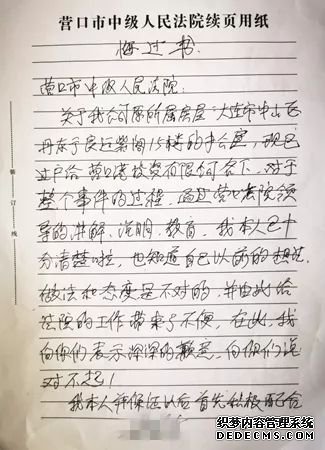 营口市中级人民法院续页用纸
悔过书
营口市中级人民法院:
关于我公司原所属房屋"大连市中山区
丹东于良运柴间15楼的半公室,现已
过户给营口港投资有限公司名下,对于
整个事件的过程,通过营口法院领
导的讲解、说明、教育,我本人已十
分清楚啦,也知道自己以前的想法
做法和态度是不对的,并由此给
法院的工作带来了不便,在此,我
向你们表示深深的歉意,向你们说
对不起!
我本人并保证以后首先积极配合
装订线
织梦内容管理系统
DEDECMS.COM